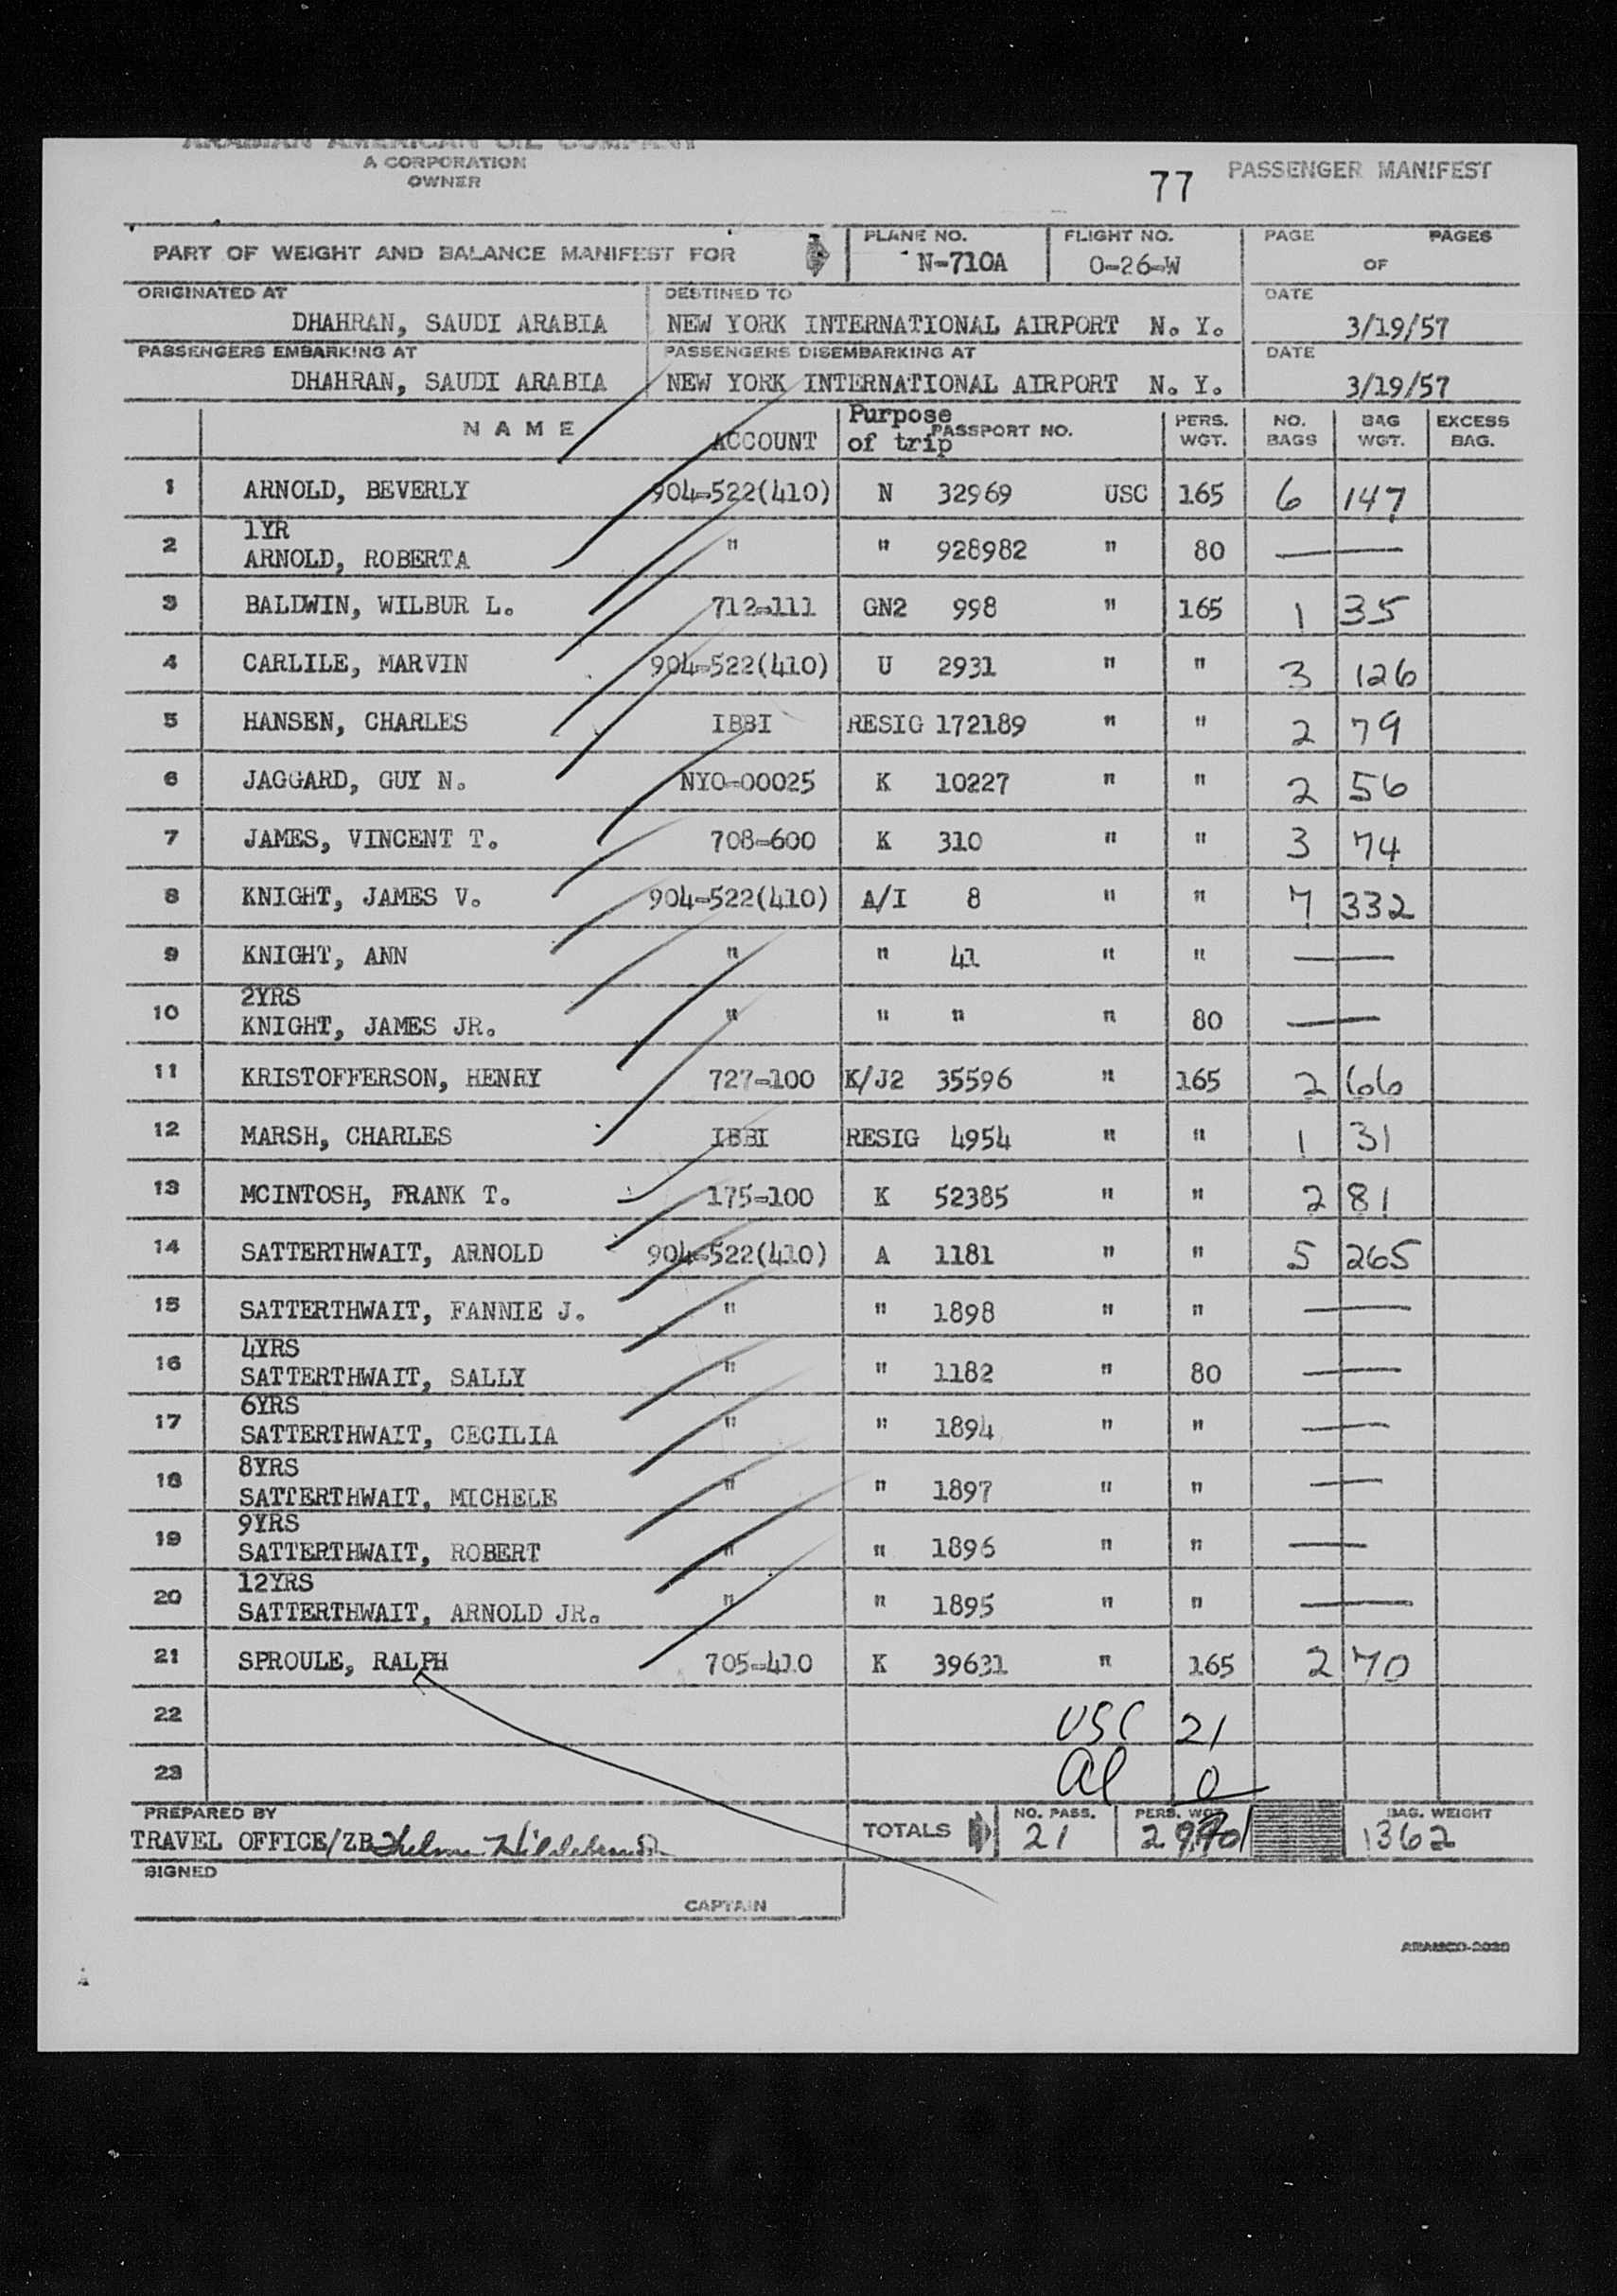 ARABIAN AMERICAN OIL COMPANY
A CORPORATION
OWNER
77 PASSENGER MANIFEST
PART OF WEIGHT AND BALANCE MANIFEST FOR
PLANE NO. N-710A
FLIGHT NO. O-26-W
PAGE OF PAGES
ORIGINATED AT DHAHRAN, SAUDI ARABIA
DESTINED TO NEW YORK INTERNATIONAL AIRPORT N. Y.
DATE 3/19/57
PASSENGERS EMBARKING AT DHAHRAN, SAUDI ARABIA
PASSENGERS DISEMBARKING AT NEW YORK INTERNATIONAL AIRPORT N. Y.
DATE 3/19/57
NAME ACCOUNT Purpose of trip PASSPORT NO. PERS. WGT. NO. BAGS BAG WGT. EXCESS BAG.
1 ARNOLD, BEVERLY 904-522(410) N 32969 USC 165 6 147
1YR
2 ARNOLD, ROBERTA " " 928982 " 80 —
3 BALDWIN, WILBUR L. 712-111 GN2 998 " 165 1 35
4 CARLILE, MARVIN 904-522(410) U 2931 " " 3 126
5 HANSEN, CHARLES IBBI RESIG 172189 " " 2 79
6 JAGGARD, GUY N. NYO-00025 K 10227 " " 2 56
7 JAMES, VINCENT T. 708-600 K 310 " " 3 74
8 KNIGHT, JAMES V. 904-522(410) A/I 8 " " 7 332
9 KNIGHT, ANN " " 41 " " —
2YRS
10 KNIGHT, JAMES JR. " " " " 80 —
11 KRISTOFFERSON, HENRY 727-100 K/J2 35596 " 165 2 66
12 MARSH, CHARLES IBBI RESIG 4954 " " 1 31
13 MCINTOSH, FRANK T. 175-100 K 52385 " " 2 81
14 SATTERTHWAIT, ARNOLD 904-522(410) A 1181 " " 5 265
15 SATTERTHWAIT, FANNIE J. " " 1898 " " —
4YRS
16 SATTERTHWAIT, SALLY " " 1182 " 80 —
6YRS
17 SATTERTHWAIT, CECILIA " " 1894 " " —
8YRS
18 SATTERTHWAIT, MICHELE " " 1897 " " —
9YRS
19 SATTERTHWAIT, ROBERT " " 1896 " " —
12YRS
20 SATTERTHWAIT, ARNOLD JR. " " 1895 " " —
21 SPROULE, RALPH 705-410 K 39631 " 165 2 70
22 USC 21
23 al 0
PREPARED BY
TRAVEL OFFICE/ZB Thelma
TOTALS NO. PASS. 21 PERS. WGT. BAG. WEIGHT 1362
SIGNED
CAPTAIN
ARAMCO-2030